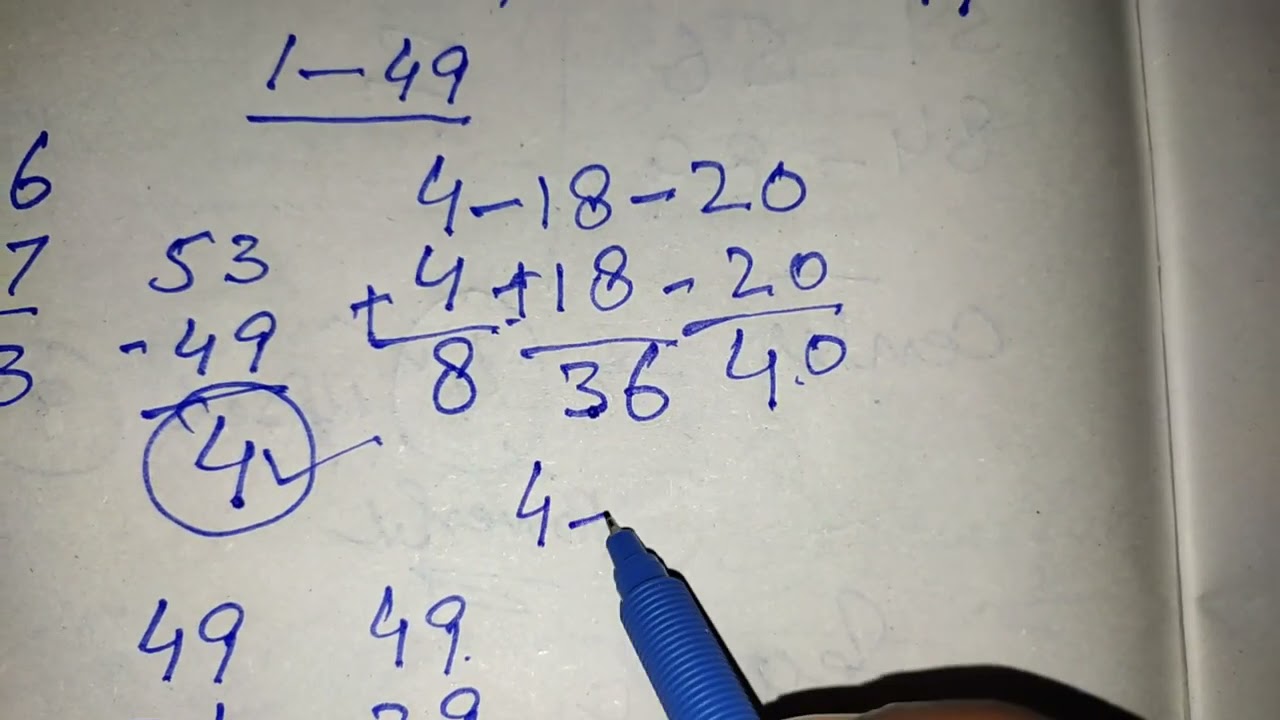 1-49
4-18-20
6
53 +4+18-20
7
-49 8 36 40
3
4
4-
49 49